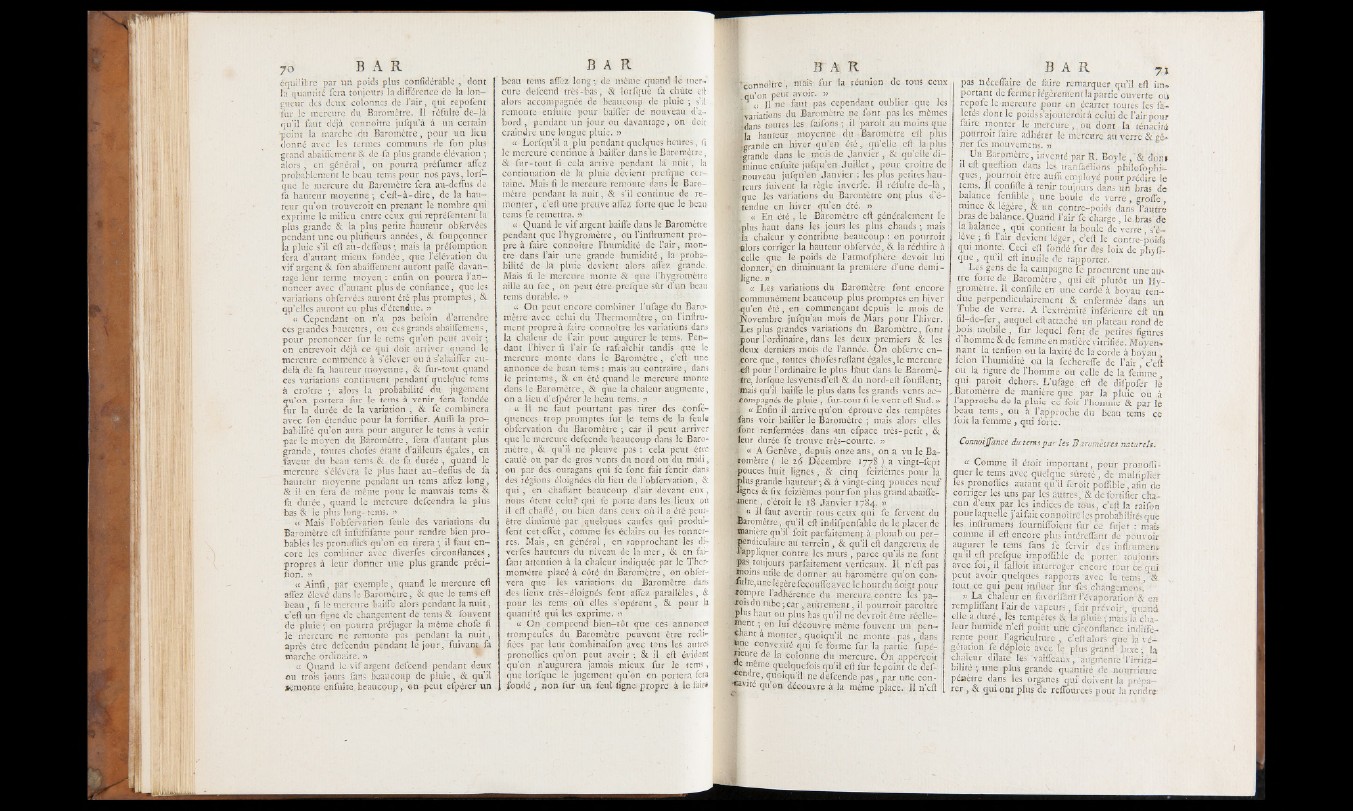 70 BAR
équilibre par un poids plus considérable , dont
la quantité sera toujours la différence de la lon-
gueur des deux colonnes de l'air, qui reposent
sur le mercure du Baromètre. Il résulte de-là
qu'il faut déjà connoître jusqu'à un certain
point la marche du Baromètre, pour un lieu
donné avec les termes communs de son plus
grand abaissement & de sa plus grande élévation ;
alors , en général , on pourra présumer assez
probablement le beau tems pour nos pays, lors-
que le mercure du Baromètre sera au-dessus de
sa hauteur moyenne ; c'est-à-dire, de la hau-
teur qu'on trouveroit en prenant le nombre qui
exprime le milieu entre ceux qui représentent la
plus grande & la plus petite hauteur observées
pendant une ou plusieurs années, & soupçonner
la pluie s'il est au-dessous ; mais la présomption
sera d'autant mieux fondée, que l'élévation du
vif argent & son abaissement auront passé davan-
tage leur terme moyen : enfin on pourra l'an-
noncer avec d'autant plus de confiance, que les
variations observées auront été plus promptes, &
qu'elles auront eu plus d'étendue. »
« Cependant on n'a pas besoin d'attendre
ces grandes hauteurs, ou ces grands abaissemens,
pour prononcer sur le tems qu'on peut avoir ;
on entrevoit déjà ce qui doit arriver quand le
mercure commence à s'élever ou à s'abaisser au-
delà de sa hauteur moyenne, & sur-tout quand
ces variations continuent pendant quelque tems
à croître ; alors la probabilité du jugement
qu'on portera sur le tems à venir sera fondée
sur la durée de la variation , & se combinera
avec son étendue pour la fortifier. Aussi la pro-
babilité qu'on aura pour augurer le tems à venir
par le moyen du Baromètre, sera d'autant plus
grande, toutes choses étant d'ailleurs égales, en
faveur du beau tems & de sa durée , quand le
mercure s'élèvera le plus haut au-dessus de sa
hauteur moyenne pendant un tems assez long,
& il en sera de même pour le mauvais tems &
sa durée, quand le mercure descendra le plus
bas & le plus long-tems. »
« Mais l'observation seule des variations du
Baromètre est insuffisante pour rendre bien pro-
bables les pronostics qu'on en tirera ; il faut en-
core les combiner avec diverses circonstances,
propres à leur donner une plus grande préci-
sion. »
« Ainsi, par exemple, quand le mercure est
assez élevé dans le Baromètre, & que le tems est
beau, si le mercure baisse alors pendant la nuit,
c'est un signe de changement de tems & souvent
de pluie ; on pourra préjuger la même chose si
le mercure ne remonte pas pendant la nuit,
après être descendu pendant le jour, suivant sa
marche ordinaire. »
« Quand le vif argent descend pendant deux
ou trois jours sans beaucoup de pluie, & qu'il
remonte ensuite beaucoup, on peut espérer un
BAR
beau tems assez long ; de même quand le mer-
cure descend très-bas, & lorsque sa chûte est
alors accompagnée de beaucoup de pluie ; s'il
remonte ensuite pour baisser de nouveau d'a-
bord , pendant un jour ou davantage, on doit
craindre une longue pluie. »
« Lorsqu'il a plu pendant quelques heures, si
le mercure continue à baisser dans le Baromètre,
& sur-tout si cela arrive pendant la nuit, la
continuation de la pluie devient presque cer-
taine. Mais si le mercure remonte dans le Baro-
mètre pendant la nuit, & s'il continue de re-
monter, c'est une preuve assez forte que le beau
tems se remettra. »
« Quand le vif argent baisse dans le Baromètre
pendant que l'hygromètre, ou l'instrument pro-
pre à faire connoître l'humidité de l'air, mon-
tre dans l'air une grande humidité, la proba-
bilité de la pluie devient alors assez grande.
Mais si le mercure monte & que l'hygromètre
aille au sec, on peut être presque sûr d'un beau
tems durable. »
« On peut encore combiner l'usage du Baro-
mètre avec celui du Thermomètre, ou l'instru-
ment propre à faire connoître les variations dans
la chaleur de l'air pour augurer le tems. Pen-
dant l'hiver si l'air se rafraîchit tandis que le
mercure monte dans le Baromètre, c'est une
annonce de beau tems : mais au contraire, dans
le printems, & en été quand le mercure monte
dans le Baromètre, & que la chaleur augmente,
on a lieu d'espérer le beau tems. »
« Il ne faut pourtant pas tirer des consé-
quences trop promptes sur le tems de la seule
observation du Baromètre ; car il peut arriver
que le mercure descende beaucoup dans le Baro-
mètre, & qu'il ne pleuve pas : cela peut être
causé ou par de gros vents du nord ou du midi,
ou par des ouragans qui se font fait sentir dans
des régions éloignées du lieu de l'observation, &
qui , en chassant beaucoup d'air devant eux,
nous ôtent celui qui se porte dans les lieux où
il est chassé, ou bien dans ceux où il a été peut-
être diminué par quelques causes qui produi-
sent cet effet, comme les éclairs ou les tonner-
res. Mais, en général, en rapprochant les di-
verses hauteurs du niveau de la mer, & en fai-
sant attention à la chaleur indiquée par le Ther-
momètre placé à côté du Baromètre, on obser-
vera que les variations du Baromètre dans
des lieux très-éloignés sont assez parallèles, &
pour les tems où elles s'opèrent, & pour la
quantité qui les exprime. »
« On comprend bien-tôt que ces annonces
trompeuses du Baromètre peuvent être recti-
fiées par leur combinaison avec tous les autres
pronostics qu'on peut avoir ; & il est évident
qu'on n'augurera jamais mieux sur le tems,
que lorsque le jugement qu'on en portera sera
fondé, non sur un seul signe propre à le faire
BAR
connoître , mais sur la réunion de tous ceux
qu'on peut avoir. »
« Il ne faut pas cependant oublier que les
variations du Baromètre ne sont pas les mêmes
dans toutes les saisons ; il paroît au moins que
la hauteur moyenne du Baromètre est plus
grande en hiver qu'en été, qu'elle est la plus
grande dans le mois de Janvier, & qu'elle di-
minue ensuite jusqu'en Juillet, pour croître de
nouveau jusqu'en Janvier : les plus petites hau-
teurs suivent la règle inverse. Il résulte de-là,
que les variations du Baromètre ont plus d'é-
tendue en hiver qu'en été. »
« En été, le Baromètre est généralement le
plus haut dans les jours les plus chauds ; mais
la chaleur y contribue beaucoup : on pourroit
alors corriger la hauteur observée, & la réduire à
celle que le poids de l'atmosphère devoit lui
donner, en diminuant la première d'une demi-
ligne. »
« Les variations du Baromètre sont encore
communément beaucoup plus promptes en hiver
qu'en été, en commençant depuis le mois de
Novembre jusqu'au mois de Mars pour l'hiver.
Les plus grandes variations du Baromètre, sont
pour l'ordinaire, dans les deux premiers & les
deux derniers mois de l'année. On observe en-
core que, toutes choses restant égales, le mercure
est pour l'ordinaire le plus haut dans le Baromè-
tre, lorsque les vents d'est & du nord-est soufflent ;
mais qu'il baisse le plus dans les grands vents ac-
compagnés de pluie, sur-tout si le vent est Sud. »
« Enfin il arrive qu'on éprouve des tempêtes
sans voir baisser le Baromètre ; mais alors elles
sont renfermées dans un espace très-petit, &
leur durée se trouve très-courte. »
« A Genève, depuis onze ans, on a vu le Ba-
romètre ( le 26 Décembre 1778 ) à vingt-sept
pouces huit lignes, & cinq seizièmes pour la
plus grande hauteur ; & à vingt-cinq pouces neuf
lignes & six seizièmes pour son plus grand abaisse-
ment , c'étoit le 18 Janvier 1784. »
« Il faut avertir tous ceux qui se servent du
Baromètre, qu'il est indispensable de le placer de
manière qu'il soit parfaitement à plomb ou per-
pendiculaire au terrein, & qu'il est dangereux de
l'appliquer contre les murs, parce qu'ils ne sont
pas toujours parfaitement verticaux. Il n'est pas
moins utile de donner au baromètre qu'on con-
sulte, une légère secousse avec le bout du doigt pour
rompre l'adhérence du mercure contre les pa-
rois du tube ; car, autrement, il pourroit paroître
plus haut ou plus bas qu'il ne devroit être réelle-
ment ; on lui découvre même souvent un pen-
chant à monter, quoiqu'il ne monte pas, dans
une convexité qui se forme sur la partie supé-
rieure de la colonne du mercure. On apperçoit
de même quelquefois qu'il est sur le point de des-
cendre, quoiqu'il ne descende pas, par une con-
cavité qu'on découvre à la même place. Il n'est
BAR 71
pas nécessaire de faire remarquer qu'il est im-
portant de fermer légèrement la partie ouverte où
repose le mercure pour en écarter toutes les sa-
letés dont le poids s'ajouteroit à celui de l'air pour
faire monter le mercure, ou dont la ténacité
pourroit faire adhérer le mercure au verre & gê-
ner ses mouvemens. »
Un Baromètre, inventé par R. Boyle, & dont
il est question dans les transactions philosophi-
ques, pourroit être aussi employé pour prédire le
tems. Il consiste à tenir toujours dans un bras de
balance sensible , une boule de verre , grosse ,
mince & légère, & un contre-poids dans l'autre
bras de balance. Quand l'air se charge, le bras de
la balance , qui contient la boule de verre, s'é-
lève ; si l'air devient léger, c'est le contre-poids
qui monte. Ceci est fondé sur des loix de physi-
que , qu'il est inutile de rapporter.
Les gens de la campagne se procurent une au-
tre sorte de Baromètre, qui est plutôt un Hy-
gromètre. Il consiste en une corde à boyau ten-
due perpendiculairement & enfermée dans un
Tube de verre. A l'extrémité inférieure est un
fil-de-fer, auquel est attaché un plateau rond de
bois mobile, sur lequel sont de petites figures
d'homme & de femme en matière vitrifiée. Moyen-
nant la tension ou la laxité de la corde à boyau,
selon l'humidité ou la sécheresse de l'air, c'est
ou la figure de l'homme ou celle de la femme,
qui paroît dehors. L'usage est de disposer le
Baromètre de manière que par la pluie ou à
l'approche de la pluie ce soit l'homme & par le
beau tems, ou à l'approche du beau tems ce
soit la femme, qui sorte.
Connoissance du tems par les Baromètres naturels.
« Comme il étoit important, pour pronosti-
quer le tems avec quelque sûreté, de multiplier
les pronostics autant qu'il seroit possible, afin de
corriger les uns par les autres, & de fortifier cha-
cun d'eux par les indices de tous, c'est la raison
pour laquelle j'ai fait connoître les probabilités que
les instrumens fournissoient sur ce sujet : mais
comme il est encore plus intéressant de pouvoir
augurer le tems sans se servir des instrumens
qu'il est presque impossible de porter toujours
avec soi, il falloit interroger encore tout ce qui
peut avoir quelques rapports avec le tems, &
tout ce qui peut influer sur ses changemens. »
» La chaleur en favorisant l'évaporation & en
remplissant l'air de vapeurs, fait prévoir, quand
elle a duré, les tempêtes & la pluie ; mais la cha-
leur humide n'est point une circonstance indiffé-
rente pour l'agriculture , c'est alors que la vé-
gétation se déploie avec le plus grand luxe ; la
chaleur dilate les vaisseaux, augmente l'irrita-
bilité ; une plus grande quantité de nourriture
pénètre dans les organes qui doivent la prépa-
rer, & qui ont plus de ressources pour la rendre